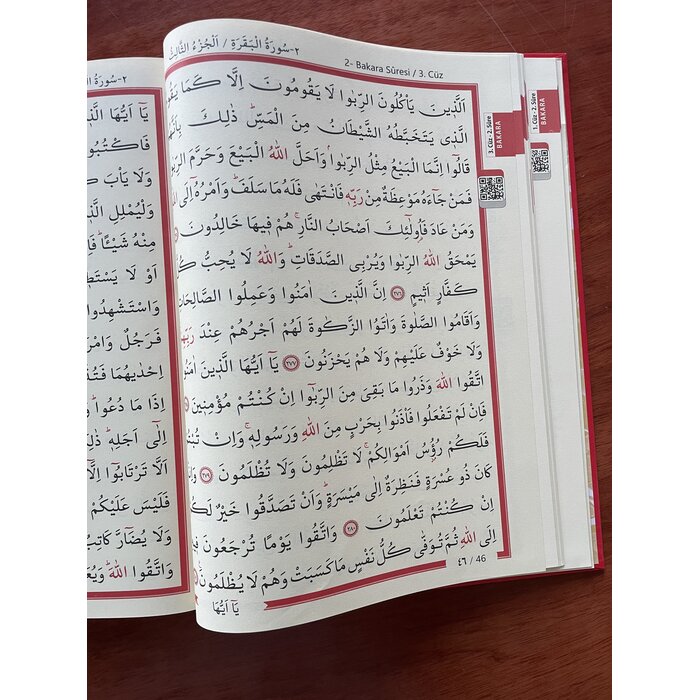 ٢- سُورَةُ الْبَقَرَةِ / اَلْجُزْءُ الثَّالِثُ
2- Bakara Sûresi / 3. Cüz
اَلَّذ۪ينَ يَأْكُلُونَ الرِّبٰوا لَا يَقُومُونَ اِلَّا كَمَا يَقُو
الَّذ۪ي يَتَخَبَّطُهُ الشَّيْطَانُ مِنَ الْمَسِّۜ ذٰلِكَ بِاَنَّهُ
قَالُٓوا اِنَّمَا الْبَيْعُ مِثْلُ الرِّبٰواۢ وَاَحَلَّ اللّٰهُ الْبَيْعَ وَحَرَّمَ الرِّبٰو
فَمَنْ جَٓاءَهُ مَوْعِظَةٌ مِنْ رَبِّه۪ فَانْتَهٰى فَلَهُ مَا سَلَفَۜ وَاَمْرُهُٓ اِلَى اللّٰهِ
وَمَنْ عَادَ فَاُو۬لٰٓئِكَ اَصْحَابُ النَّارِۚ هُمْ ف۪يهَا خَالِدُونَ
يَمْحَقُ اللّٰهُ الرِّبٰوا وَيُرْبِي الصَّدَقَاتِۜ وَاللّٰهُ لَا يُحِبُّ كُ
كَفَّارٍ اَث۪يمٍ ﴿٢٧٦﴾ اِنَّ الَّذ۪ينَ اٰمَنُوا وَعَمِلُوا الصَّالِحَاتِ
وَاَقَامُوا الصَّلٰوةَ وَاٰتَوُا الزَّكٰوةَ لَهُمْ اَجْرُهُمْ عِنْدَ رَبِّهِ
وَلَا خَوْفٌ عَلَيْهِمْ وَلَا هُمْ يَحْزَنُونَ ﴿٢٧٧﴾ يَٓا اَيُّهَا الَّذ۪ينَ اٰمَنُوا
اتَّقُوا اللّٰهَ وَذَرُوا مَا بَقِيَ مِنَ الرِّبٰٓوا اِنْ كُنْتُمْ مُؤْمِن۪ينَ
فَاِنْ لَمْ تَفْعَلُوا فَأْذَنُوا بِحَرْبٍ مِنَ اللّٰهِ وَرَسُولِه۪ۚ وَاِنْ تُبْتُ
فَلَكُمْ رُؤُ۫سُ اَمْوَالِكُمْۚ لَا تَظْلِمُونَ وَلَا تُظْلَمُونَ ﴿٢٧٩﴾ وَاِ
كَانَ ذُو عُسْرَةٍ فَنَظِرَةٌ اِلٰى مَيْسَرَةٍۜ وَاَنْ تَصَدَّقُوا خَيْرٌ لَكُ
اِنْ كُنْتُمْ تَعْلَمُونَ ﴿٢٨٠﴾ وَاتَّقُوا يَوْمًا تُرْجَعُونَ ف۪ي
اِلَى اللّٰهِ ثُمَّ تُوَفّٰى كُلُّ نَفْسٍ مَا كَسَبَتْ وَهُمْ لَا يُظْلَمُونَ
يَٓا اَيُّهَا
٤٦ / 46
3. Cüz - 2. Sûre
BAKARA
1. Cüz - 2. Sûre
BAKARA
٢- سُورَةُ الْ
يَٓا اَيُّهَا الَّذ
فَاكْتُبُو
وَلَا يَأْبَ كَ
وَلْيُمْلِلِ الَّذ
مِنْهُ شَيْـًٔاۜ فَاِ
اَوْ لَا يَسْتَط
وَاسْتَشْهِدُوا
فَرَجُلٌ وَامْرَ
اِحْدٰيهُمَا فَتُذَ
اِذَا مَا دُعُواۜ وَ
اِلٰٓى اَجَلِه۪ۜ ذٰلِ
اَلَّا تَرْتَابُٓوا اِلَّٓا
فَلَيْسَ عَلَيْكُمْ
وَلَا يُضَٓارَّ كَاتِبٌ
وَاتَّقُوا اللّٰهَۜ وَيُعَ